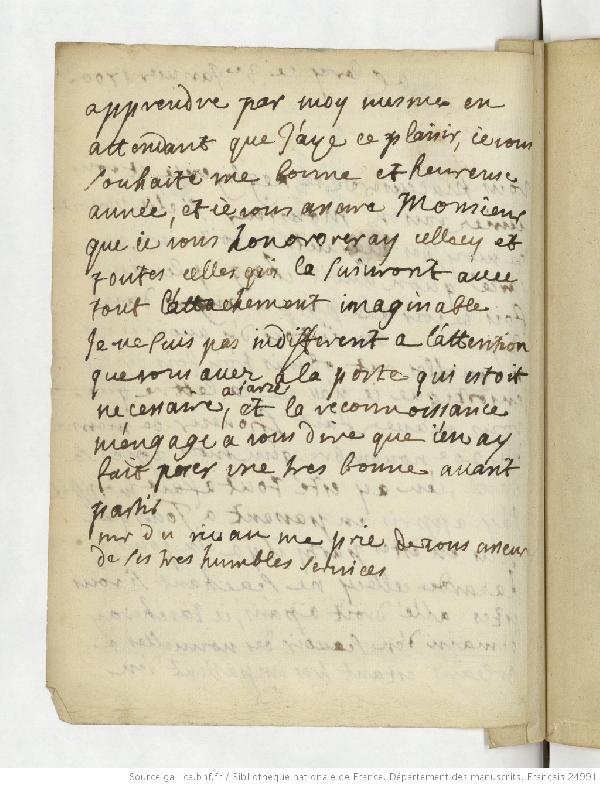 apprendre par moy mesme en
attendant que J'aye ce plaisir, ie vous
souhaite une bonne et heureuse
année, et ie vous assure Monsieur
que ie vous honoroveray cellecy et
toutes celles qui la suivront avec
tout l'attachement imaginable
Je ne suis pas indifferent a l'attention
que vous avez a la porte qui estoit
necessaire, a jarzé et la reconnoissance
m'engage a vous dire que j'en ay
fait poser une tres bonne avant
partir
mr du nivau me prie de vous asseur
de ses tres humbles services
Source gallica.bnf.fr / Bibliothèque nationale de France. Département des manuscrits. Français 24991